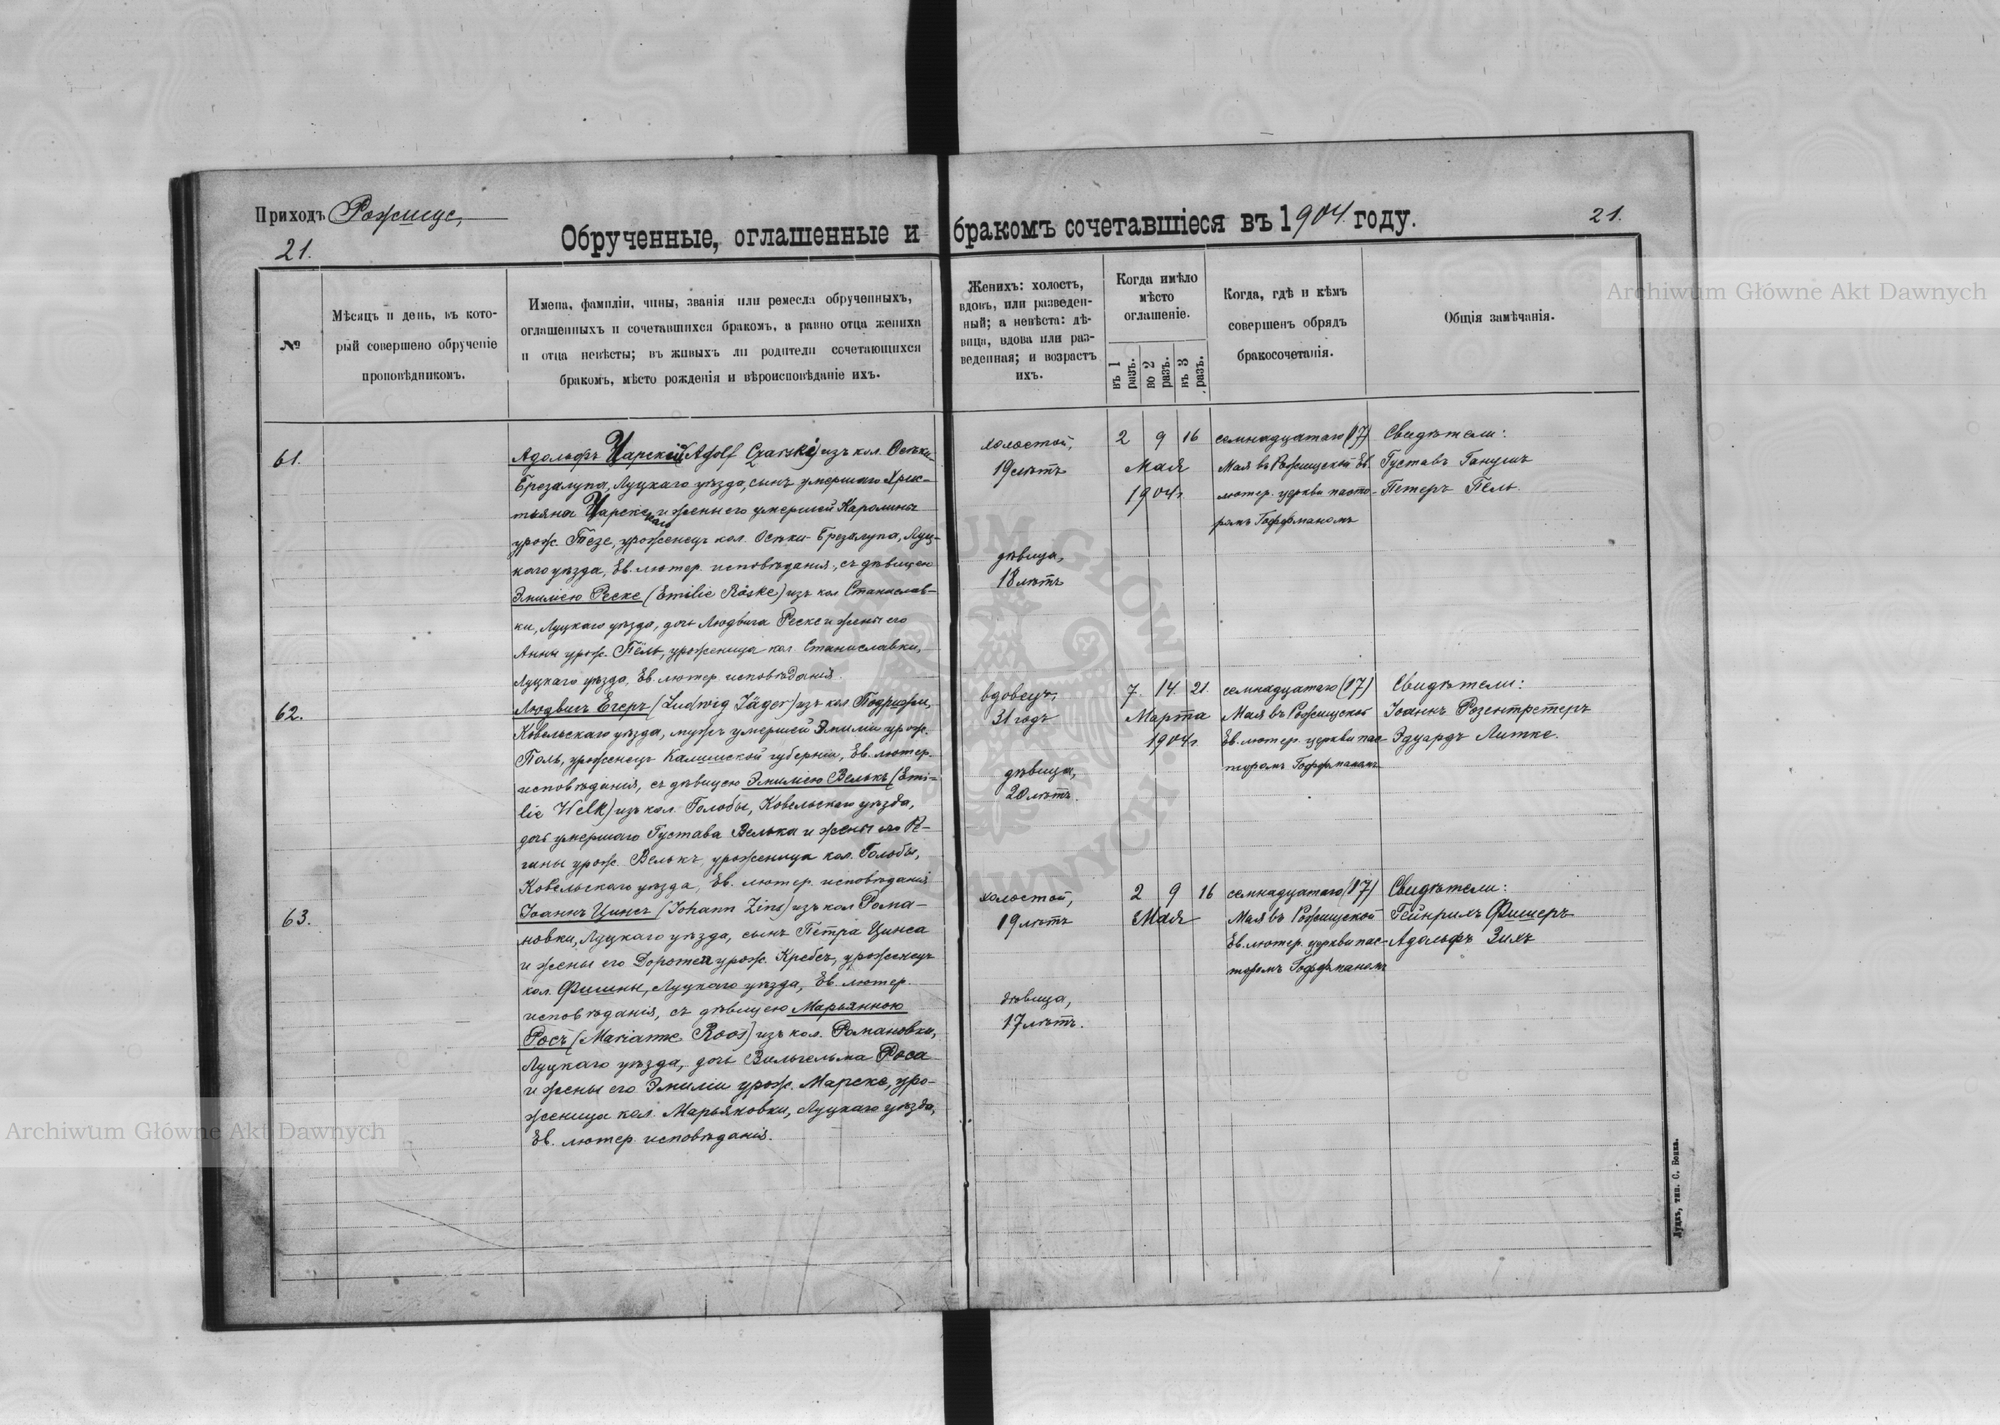 Приходъ Рожище,
21.
Обрученные, оглашенные и бракомъ сочетавшіеся въ 1904 году.
21.
№
Мѣсяцъ и день, въ кото-
рый совершено обрученіе
проповѣдникомъ.
Имена, фамиліи, чины, званія или ремесла обрученныхъ,
оглашенныхъ и сочетавшихся бракомъ, а равно отца жениха
и отца невѣсты; въ живыхъ ли родители сочетающихся
бракомъ, мѣсто рожденія и вѣроисповѣданіе ихъ.
Женихъ: холостъ,
вдовъ, или разведен-
ный; а невѣста: дѣ-
вица, вдова или раз-
веденная; и возрастъ
ихъ.
Когда имѣло
мѣсто
оглашеніе.
въ 1 разъ.
во 2 разъ.
въ 3 разъ.
Когда, гдѣ и кѣмъ
совершенъ обрядъ
бракосочетанія.
Общія замѣчанія.
61.
Адольфъ Царскій (Adolf Czarski) изъ кол. Осѣки-
Брезалупа, Луцкаго уѣзда, сынъ умершаго Хрис-
тьяна Царскаго и жены его умершей Каролины
урож. Тезе, уроженецъ кол. Осѣки-Брезалупа, Луц-
каго уѣзда, Ев. лютер. исповѣданія, съ дѣвицею
Эмиліею Реске (Emilie Röske) изъ кол. Станислав-
ки, Луцкаго уѣзда, дочь Людвига Реске и жены его
Анны урож. Пель, уроженица кол. Станиславки,
Луцкаго уѣзда, Ев. лютер. исповѣданія.
холостой,
19 лѣтъ
дѣвица,
18 лѣтъ
2 9 16
Мая
1904 г.
семнадцатаго (17)
Мая въ Рожищской Ев.
лютер. церкви пасто-
ромъ Гоффманомъ
Свидѣтели:
Густавъ Ганушъ
Петеръ Пель.
62.
Людвигъ Егеръ (Ludwig Jäger) изъ кол. Подрижи,
Ковельскаго уѣзда, мужъ умершей Эмиліи урож.
Поль, уроженецъ Калишской губерніи, Ев. лютер.
исповѣданія, съ дѣвицею Эмиліею Велькъ (Emi-
lie Welk) изъ кол. Голобы, Ковельскаго уѣзда,
дочь умершаго Густава Велька и жены его Ре-
гины урож. Велькъ, уроженица кол. Голобы,
Ковельскаго уѣзда, Ев. лютер. исповѣданія
вдовецъ,
31 годъ
дѣвица,
20 лѣтъ.
7. 14 21.
Марта
1904 г.
семнадцатаго (17)
Мая въ Рожищской
Ев. лютер. церкви пас-
торомъ Гоффманомъ
Свидѣтели:
Іоаннъ Розентретеръ
Эдуардъ Литке.
63.
Іоаннъ Цинсъ (Johann Zins) изъ кол. Рома-
новки, Луцкаго уѣзда, сынъ Петра Цинса
и жены его Доротеи урож. Кребсъ, уроженецъ
кол. Фишны, Луцкаго уѣзда, Ев. лютер.
исповѣданія, съ дѣвицею Марьянною
Росъ (Marianne Roos) изъ кол. Романовки,
Луцкаго уѣзда, дочь Вильгельма Роса
и жены его Эмиліи урож. Марске, уро-
женица кол. Марьяновки, Луцкаго уѣзда,
Ев. лютер. исповѣданія.
холостой,
19 лѣтъ
дѣвица,
17 лѣтъ.
2 9 16
Мая
семнадцатаго (17)
Мая въ Рожищской
Ев. лютер. церкви пас-
торомъ Гоффманомъ
Свидѣтели:
Гейнрихъ Фишеръ
Адольфъ Зихъ
Луцкъ, тип. С. Бонка.
Archiwum Główne Akt Dawnych
Archiwum Główne Akt Dawnych